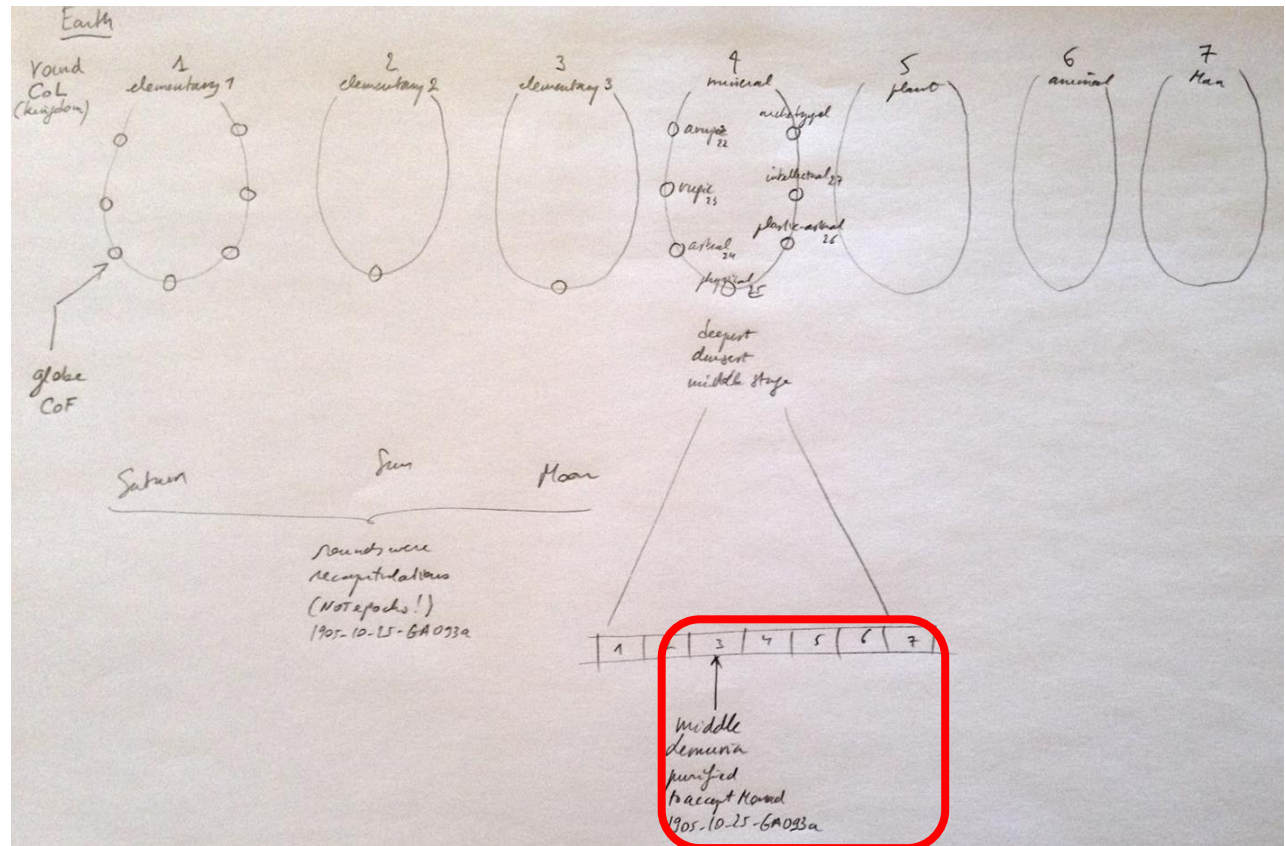 Earth
round
CoL
(kingdom)
1
elementary 1
2
elementary 2
3
elementary 3
4
mineral
5
plant
6
animal
7
Man
arupic
22
archetypal
rupic
23
intellectual 27
astral
24
plastic-astral
26
physical
25
globe
CoF
deepest
densest
middle stage
Saturn
Sun
Moon
rounds were
recapitulations
(NOT epochs!)
1905-10-25-GA093a
1
2
3
4
5
6
7
middle
Lemuria
purified
to accept Monad
1905-10-25-GA093a